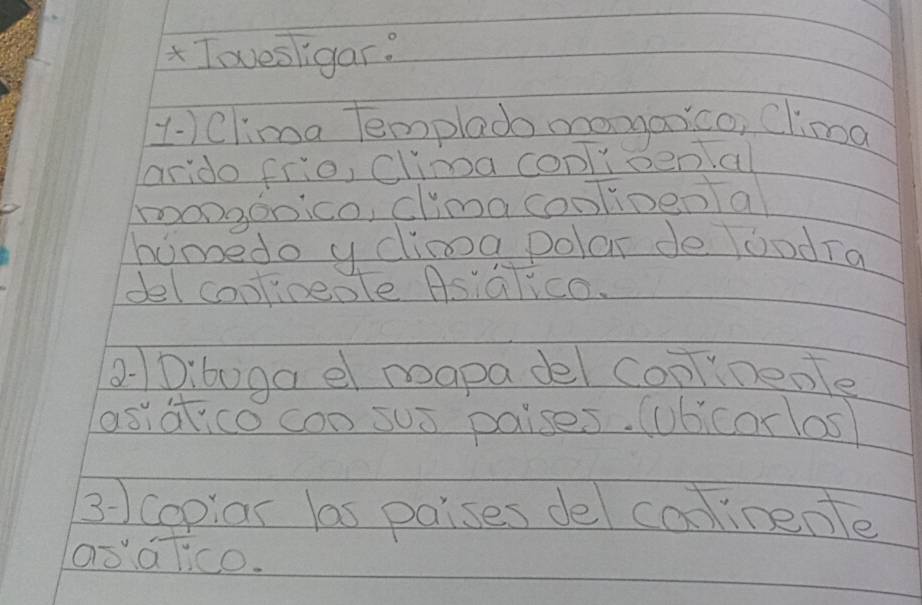 * Investigar:
1-) Clima Templado mongonico, Clima
arido frio, Clima continental
mongónico, clima continental
húmedo y clima polar de Túndra
del continente Asiático.
2-) Dibuga el mapa del continente
asiático con sus paises. (Ubicarlos)
3-) Copiar los paises del continente
asiático.